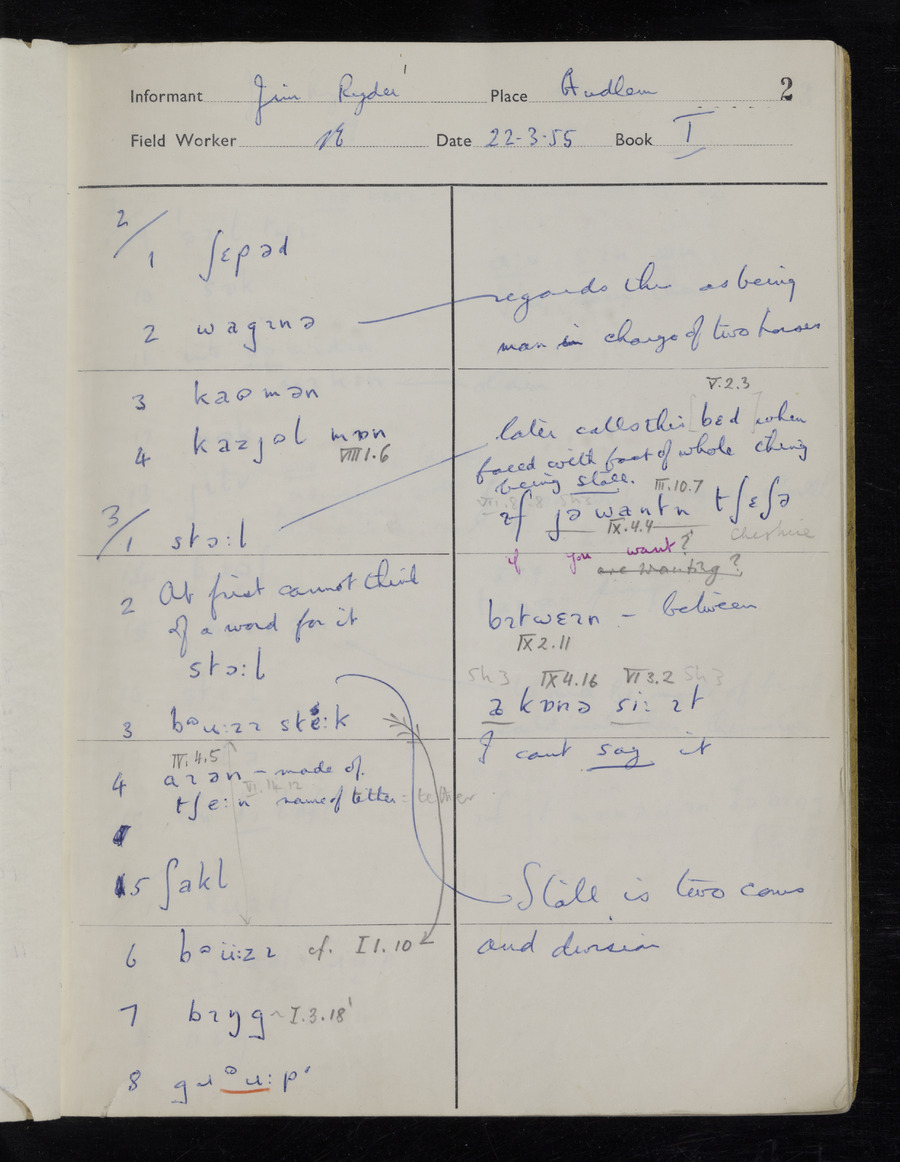 Informant Jim Ryder Place Audlem 2
Field Worker Date 22-3-55 Book I
2/
1 ʃɛpəd
2 wagɪnə
3 kaʊmən
4 kaɪjəl mɒn
VIII 1.6
3/
1 stɔ:l
2 At first cannot think
of a word for it
stɔ:l
3 bᵊu:zɪ stɛ:k
IV.4.5
4 aɪən – made of
VI.14.12
tʃe:n name of tether = tether
5 ʃakl
6 bᵊü:zɪ cf. I 1.10
7 bɪŋg ~ I.3.18
8 gɹᵊu:p
regards this as being
man in charge of two horses
V.2.3
later calls this [bɛd] when
faced with foot of whole thing
being stall. III.10.7
ɪf jə wantn tʃɛʃə
IX.4.4 Cheshire
if you want?
are wanting?
bɪtwɛɪn – between
IX 2.11
Sh 3 IX 4.16 VI 3.2 Sh 3
kɒnə si: ɪt
I cant say it
Stall is two cows
and division